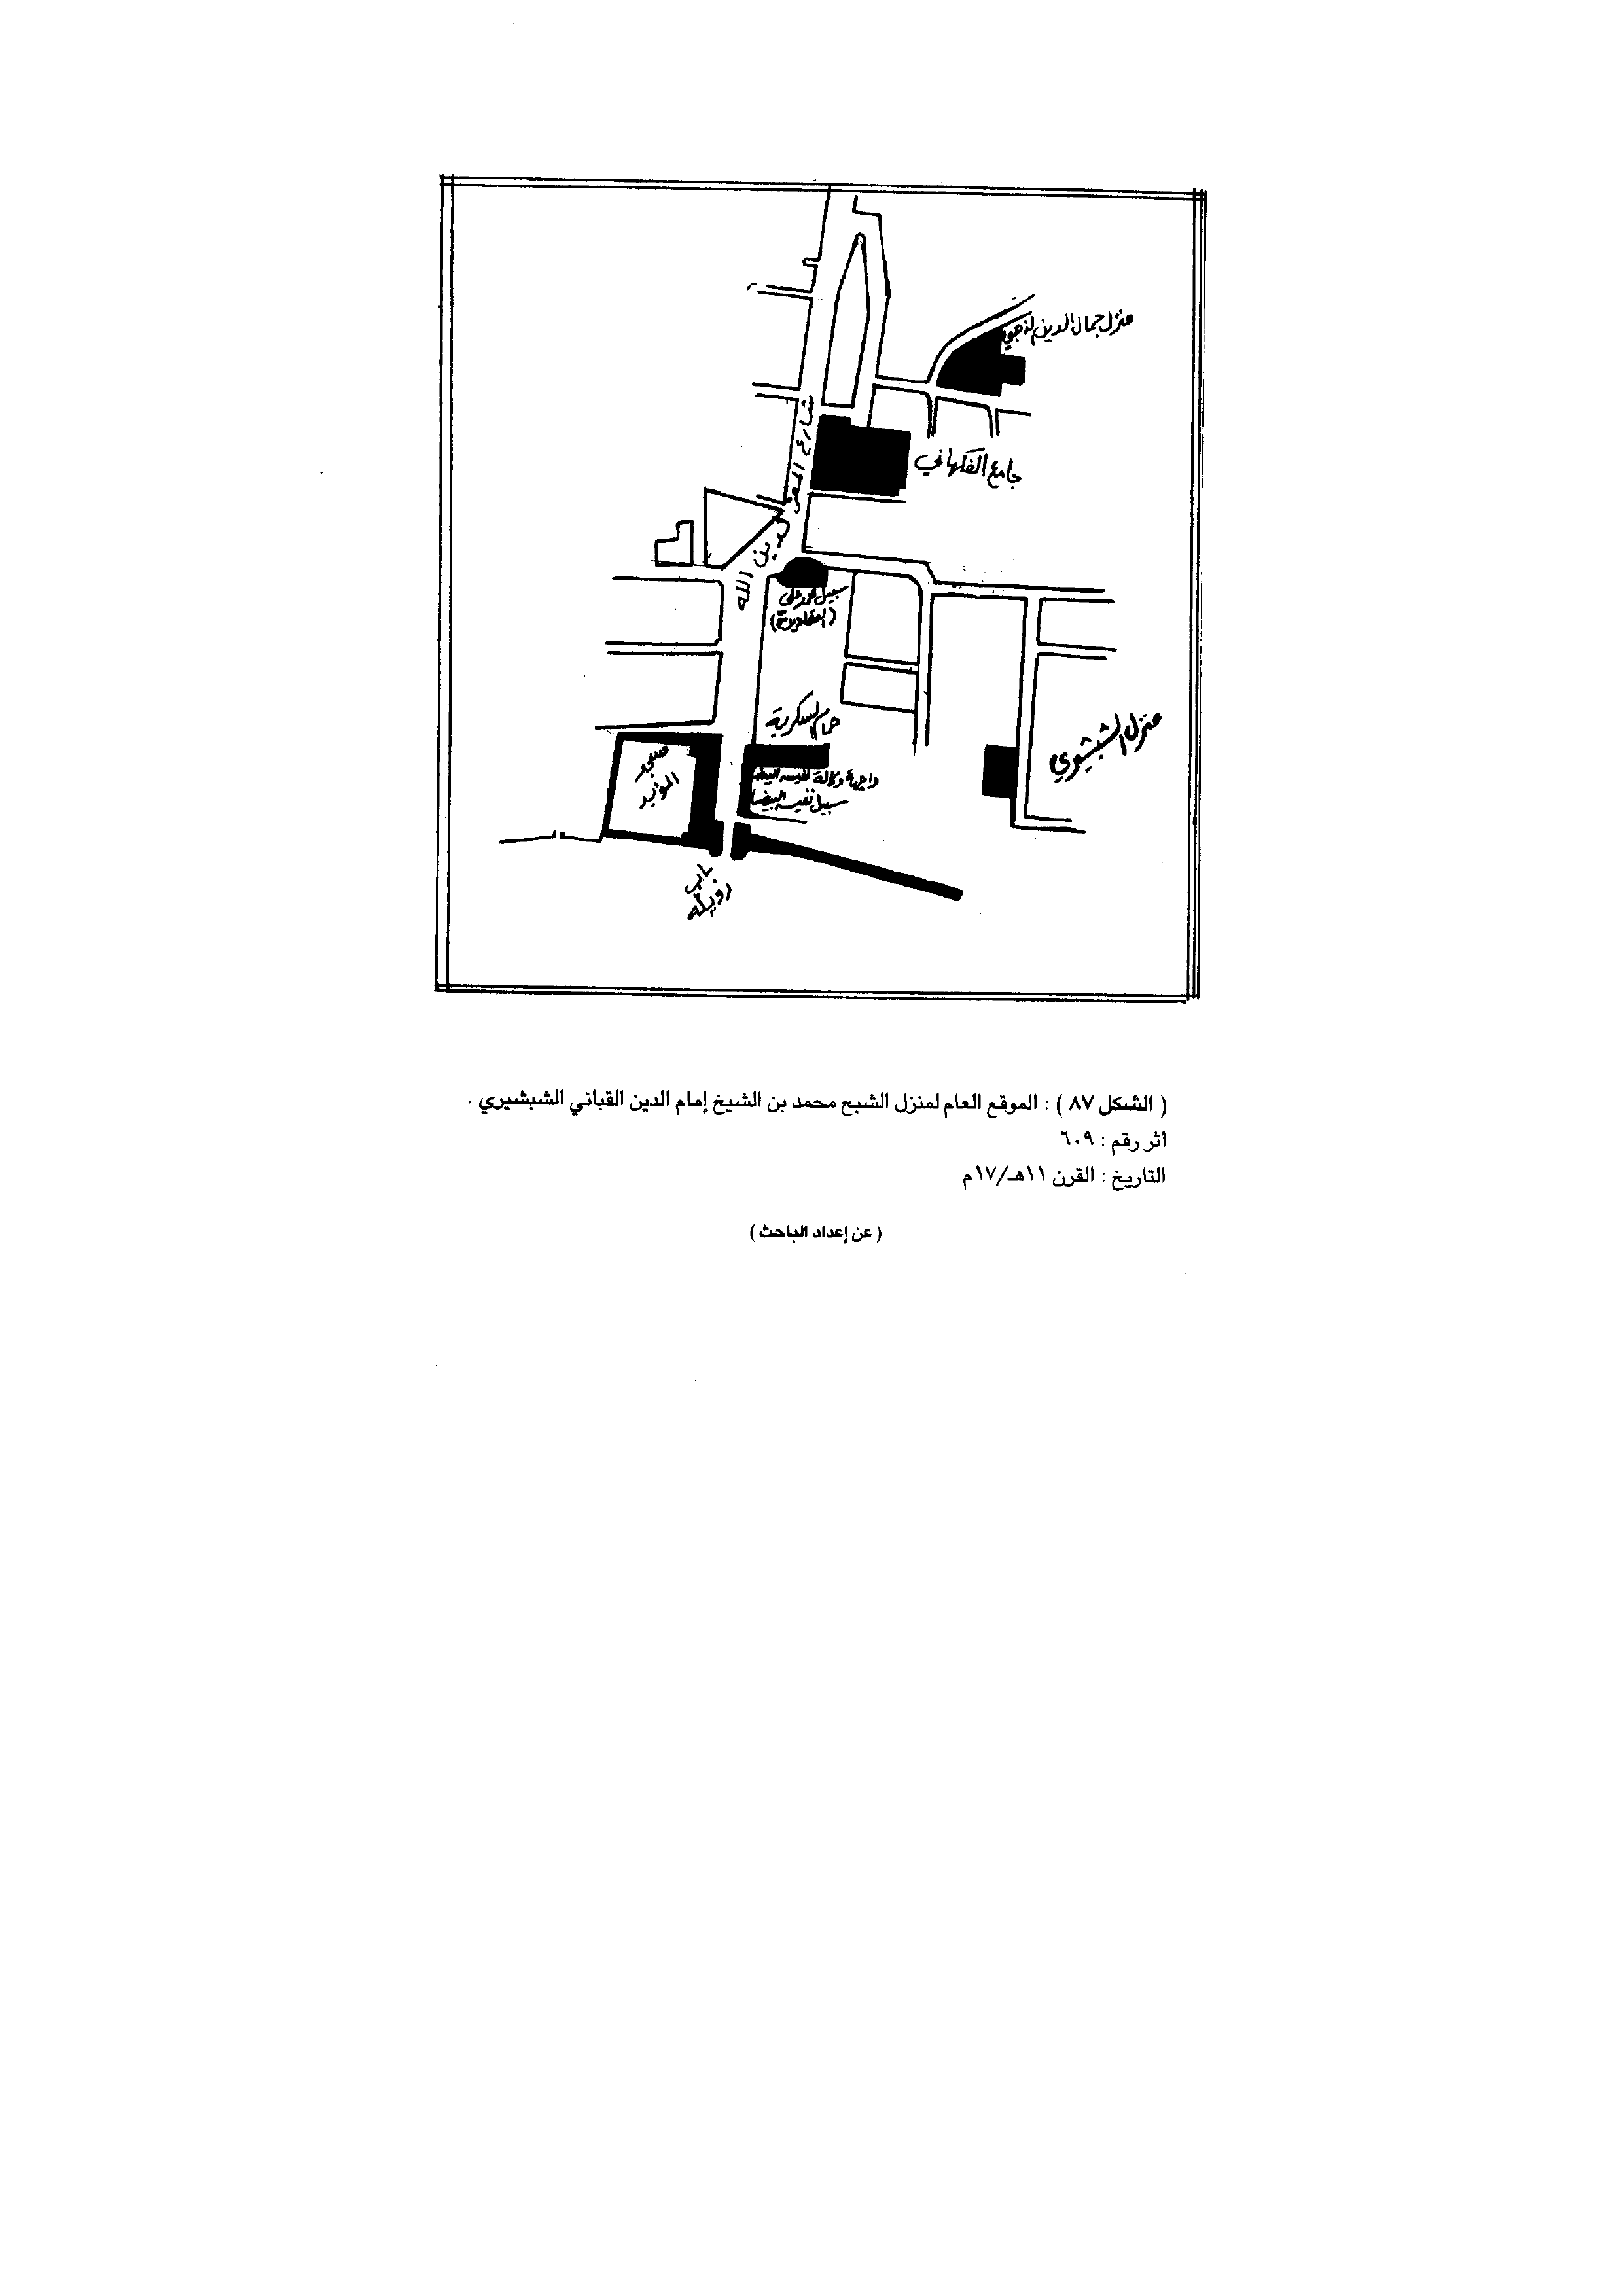 منزل جمال الدين الذهبي
جامع الفكهاني
شارع المعز لدين الله
سبيل محمد علي
(العقادين)
حمام السكرية
منزل الشبشيري
مسجد
المؤيد
واجهة وكالة نفيسه البيضا
سبيل نفيسه البيضا
باب
زويله
( الشكل ٨٧ ) : الموقع العام لمنزل الشبح محمد بن الشيخ إمام الدين القباني الشبشيري .
أثر رقم : ٦٠٩
التاريخ : القرن ١١هـ/١٧م
( عن إعداد الباحث )